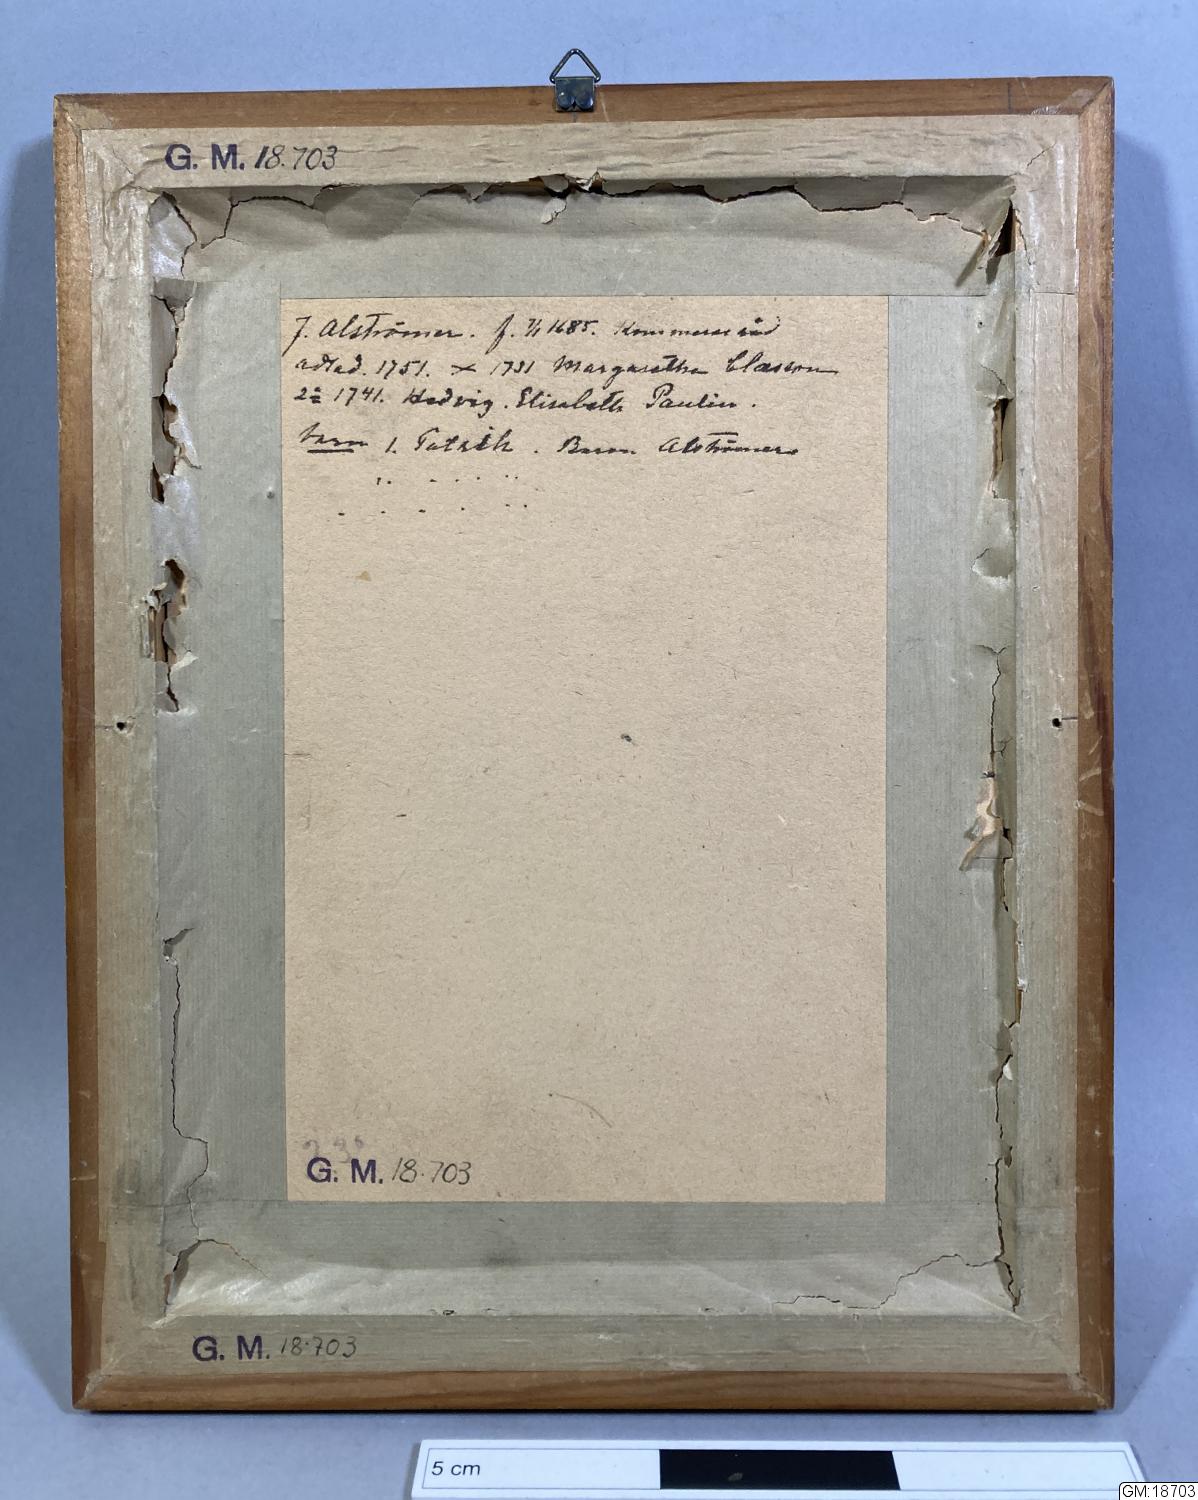 G. M. 18.703
J. Alströmer. f. 7/1 1685. Kommerseråd
adlad. 1751. × 1731 Margaretha Clason
2:a 1741. Hedvig. Elisabeth Paulin.
barn 1. Patrik. Baron Alströmer
G. M. 18.703
G. M. 18.703
5 cm
GM:18703